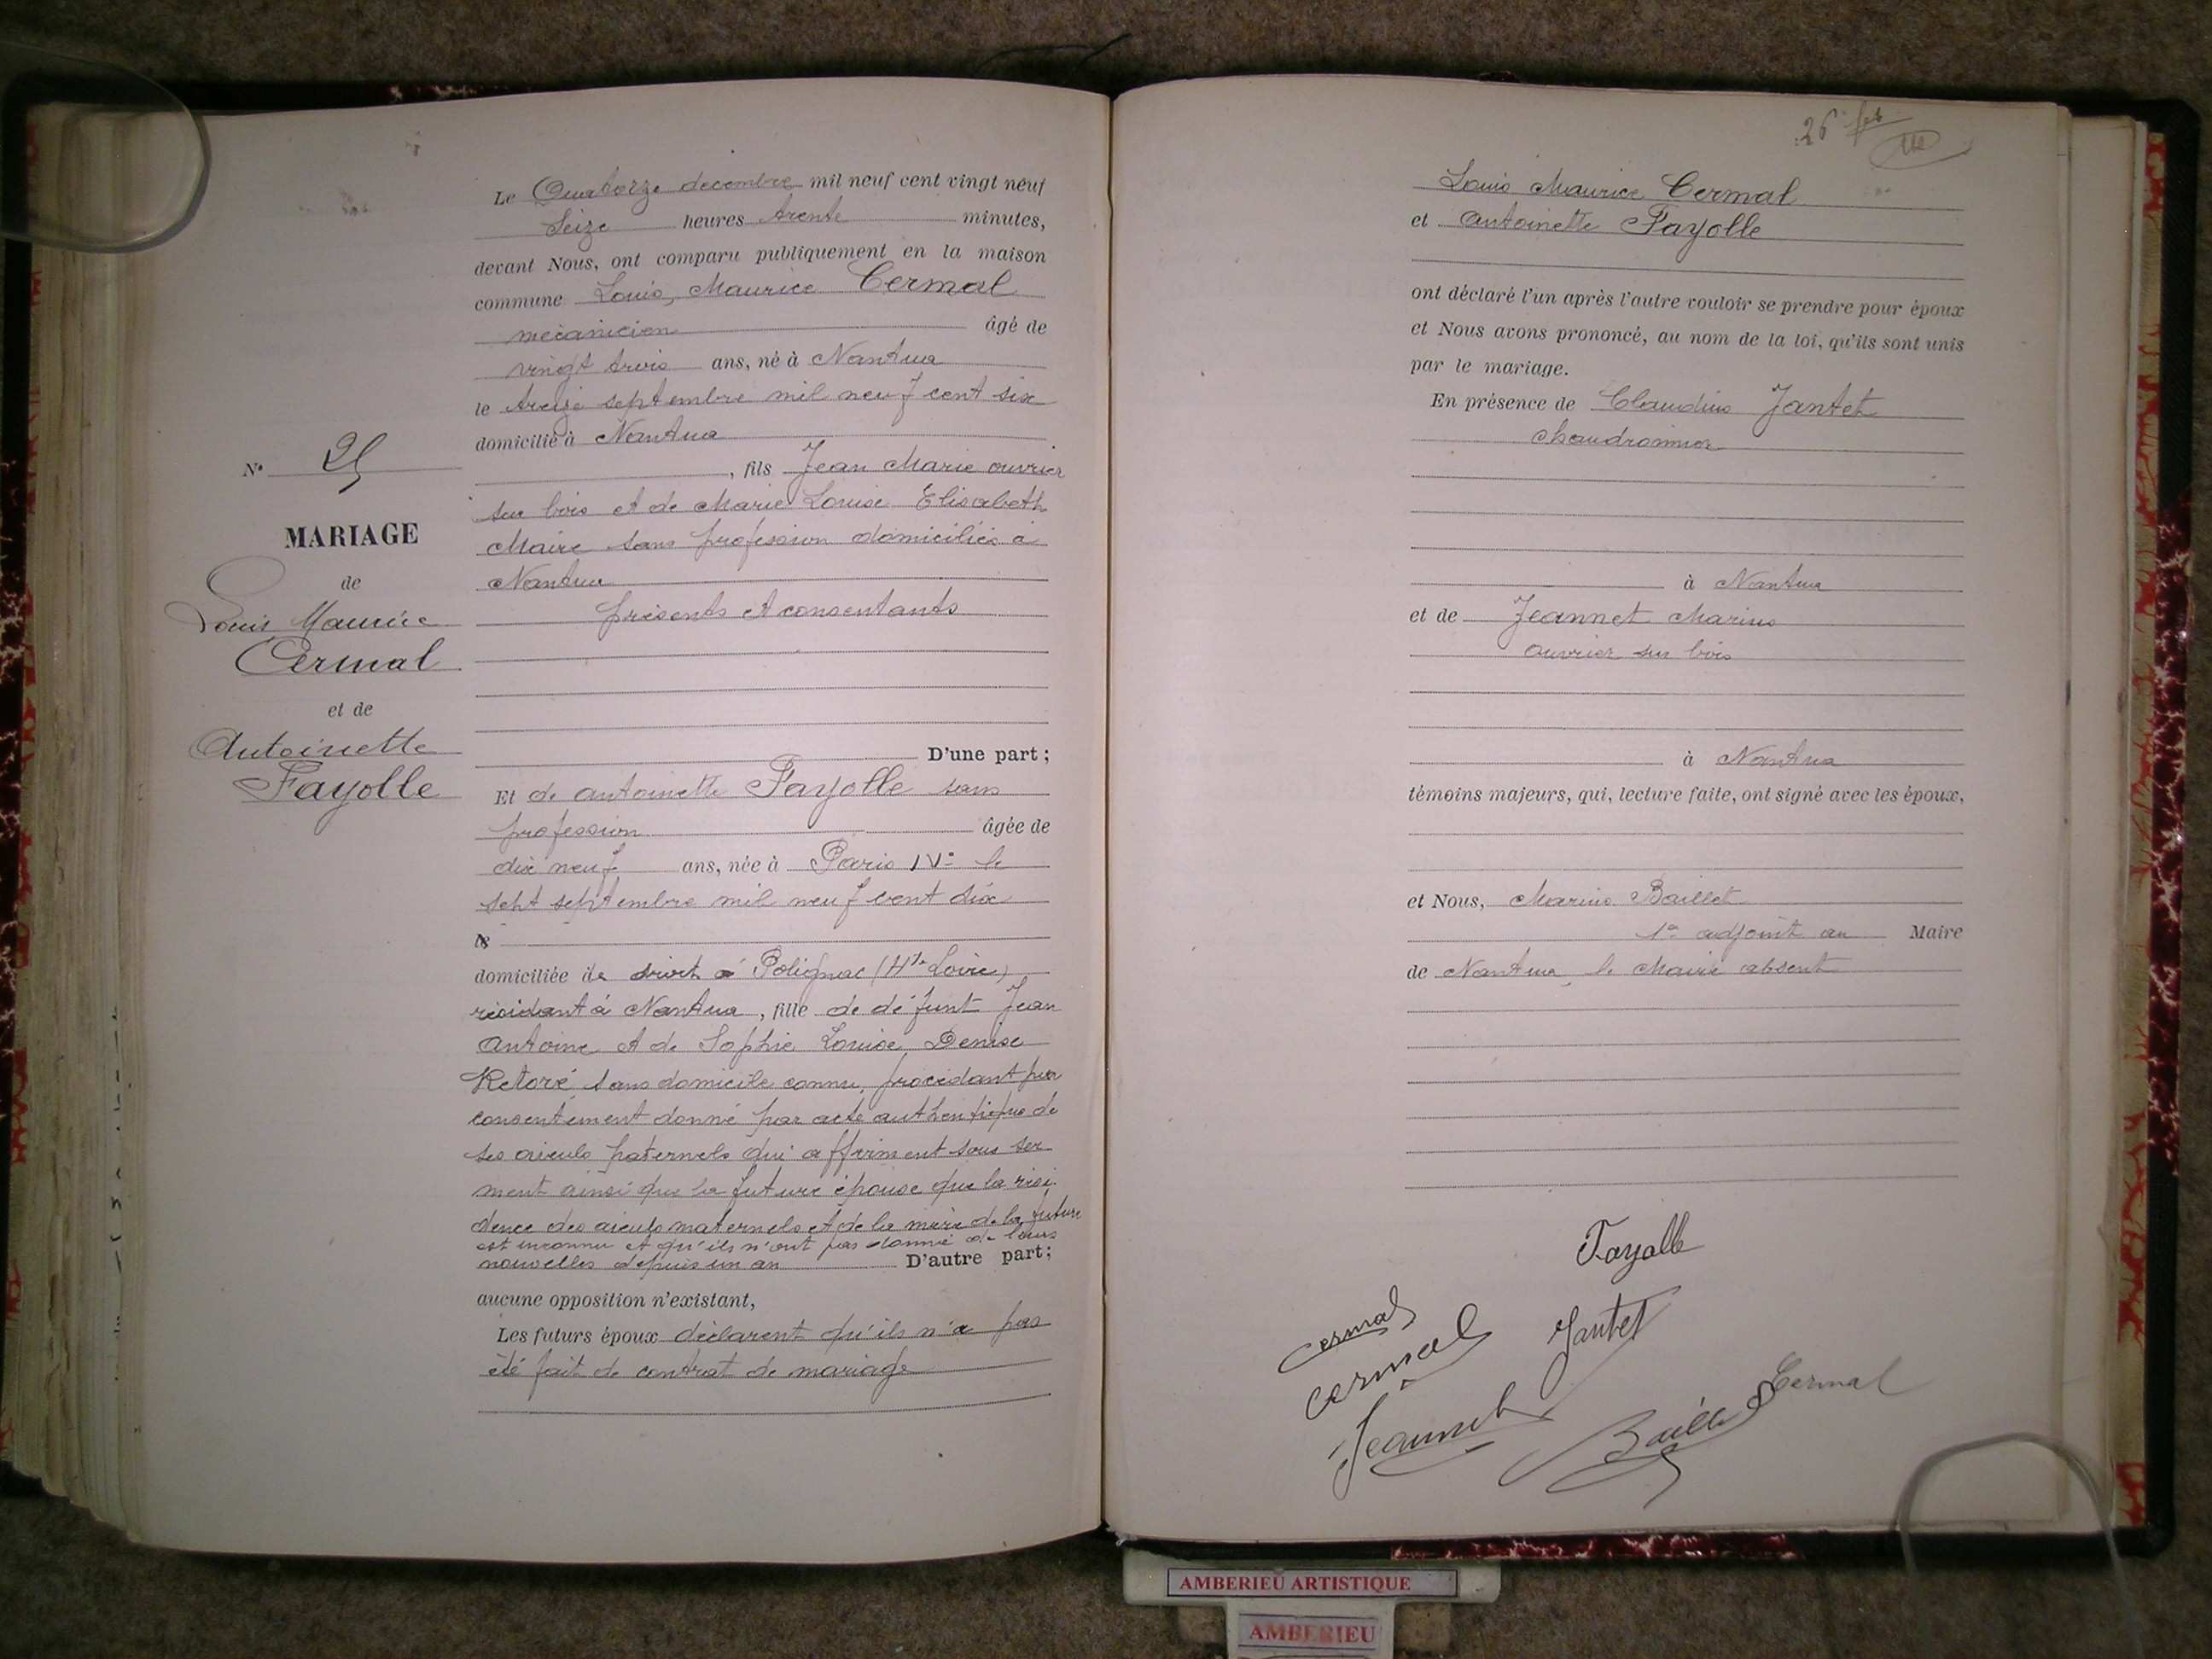 Le Quatorze décembre mil neuf cent vingt neuf
Seize heures trente minutes,
devant Nous, ont comparu publiquement en la maison
commune Louis, Maurice Cermal
mécanicien âgé de
vingt trois ans, né à Nantua
le treize septembre mil neuf cent six
domicilié à Nantua
, fils Jean Marie ouvrier
sur bois et de Marie Louise Elisabeth
Maire sans profession domiciliés à
Nantua
présents et consentants
D'une part ;
Et de Antoinette Fayolle sans
profession âgée de
dix neuf ans, née à Paris IVe le
sept septembre mil neuf cent dix
le
domiciliée de droit à Polignac (Hte Loire)
résidant à Nantua, fille de défunt Jean
Antoine et de Sophie Louise Denise
Retoré sans domicile connu, procédant par
consentement donné par acte authentique de
ses aïeuls paternels qui affirment sous ser
ment ainsi que la future épouse que la rési
dence des aïeuls maternels et de la mère de la future
est inconnu et qu'ils n'ont pas donné de leurs
nouvelles depuis un an D'autre part ;
aucune opposition n'existant,
Les futurs époux déclarent qu'ils n'a pas
été fait de contrat de mariage
N° 25
MARIAGE
de
Louis Maurice
Cermal
et de
Antoinette
Fayolle
26
Louis Maurice Cermal
et Antoinette Fayolle
ont déclaré l'un après l'autre vouloir se prendre pour époux
et Nous avons prononcé, au nom de la loi, qu'ils sont unis
par le mariage.
En présence de Claudius Jantet
chaudronnier
à Nantua
et de Jeannet Marius
ouvrier sur bois
à Nantua
témoins majeurs, qui, lecture faite, ont signé avec les époux,
et Nous, Marius Baillet
1er adjoint au Maire
de Nantua, le Maire absent
Fayolle
Cermal
Cermal Jantet
Jeannet Baillet Cermal
AMBERIEU ARTISTIQUE
AMBERIEU